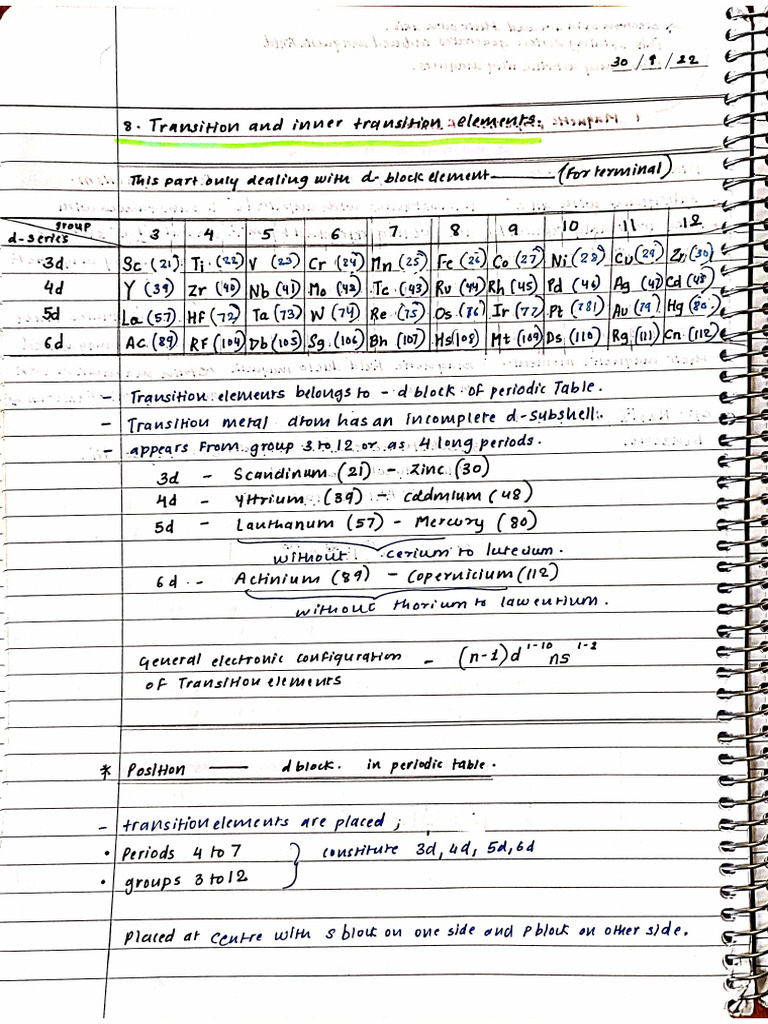 30/9/22
8. Transition and inner transition elements.
This part only dealing with d-block element —— (For terminal)
group
d-series 3 4 5 6 7 8 9 10 11 12
3d Sc (21) Ti (22) V (23) Cr (24) Mn (25) Fe (26) Co (27) Ni (28) Cu (29) Zn (30)
4d Y (39) Zr (40) Nb (41) Mo (42) Tc (43) Ru (44) Rh (45) Pd (46) Ag (47) Cd (48)
5d La (57) HF (72) Ta (73) W (74) Re (75) Os (86) Ir (77) Pt (781) Au (79) Hg (80)
6d AC (89) RF (104) Db (105) Sg (106) Bh (107) Hs (108) Mt (109) Ds (110) Rg (111) Cn (112)
- Transition elements belongs to - d block of periodic Table.
- Transition metal atom has an incomplete d-subshell.
- appears From group 3 to 12 or as 4 long periods.
3d - Scandinum (21) - Zinc (30)
4d - Yttrium (39) - cadmium (48)
5d - Lauthanum (57) - Mercury (80)
without cerium to lutedum.
6d - Actinium (89) - Copernicium (112)
without thorium to lawentium.
General electronic configuration - (n-1)d¹⁻¹⁰ ns¹⁻²
of Transition elements
* Position —— d block. in periodic table.
- transition elements are placed ;
• Periods 4 to 7 } constitute 3d, 4d, 5d, 6d
• groups 3 to 12
Placed at centre with s block on one side and p block on other side.